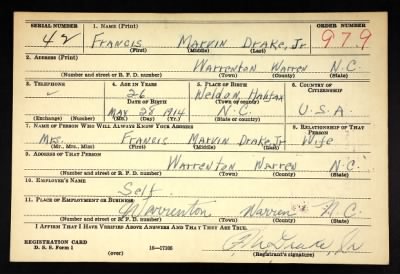 SERIAL NUMBER 1. NAME (Print) ORDER NUMBER
42 FRANCIS MARVIN DRAKE, Jr 979
(First) (Middle) (Last)
2. ADDRESS (Print)
WARRENTON WARREN N.C.
(Number and street or R. F. D. number) (Town) (County) (State)
3. TELEPHONE 4. AGE IN YEARS 5. PLACE OF BIRTH 6. COUNTRY OF CITIZENSHIP
26 WELDON HALIFAX
DATE OF BIRTH (Town or county)
MAY 28 1914 N.C. U.S.A.
(Exchange) (Number) (Mo.) (Day) (Yr.) (State or country)
7. NAME OF PERSON WHO WILL ALWAYS KNOW YOUR ADDRESS 8. RELATIONSHIP OF THAT PERSON
MRS. FRANCIS MARVIN DRAKE, Jr. WIFE
(Mr., Mrs., Miss) (First) (Middle) (Last)
9. ADDRESS OF THAT PERSON
WARRENTON WARREN N.C.
(Number and street or R. F. D. number) (Town) (County) (State)
10. EMPLOYER'S NAME
Self
11. PLACE OF EMPLOYMENT OR BUSINESS
Warrenton Warren N.C.
(Number and street or R. F. D. number) (Town) (County) (State)
I AFFIRM THAT I HAVE VERIFIED ABOVE ANSWERS AND THAT THEY ARE TRUE.
REGISTRATION CARD
D. S. S. Form 1 (over) 16—17105 (Registrant's signature)
Drake, Jr